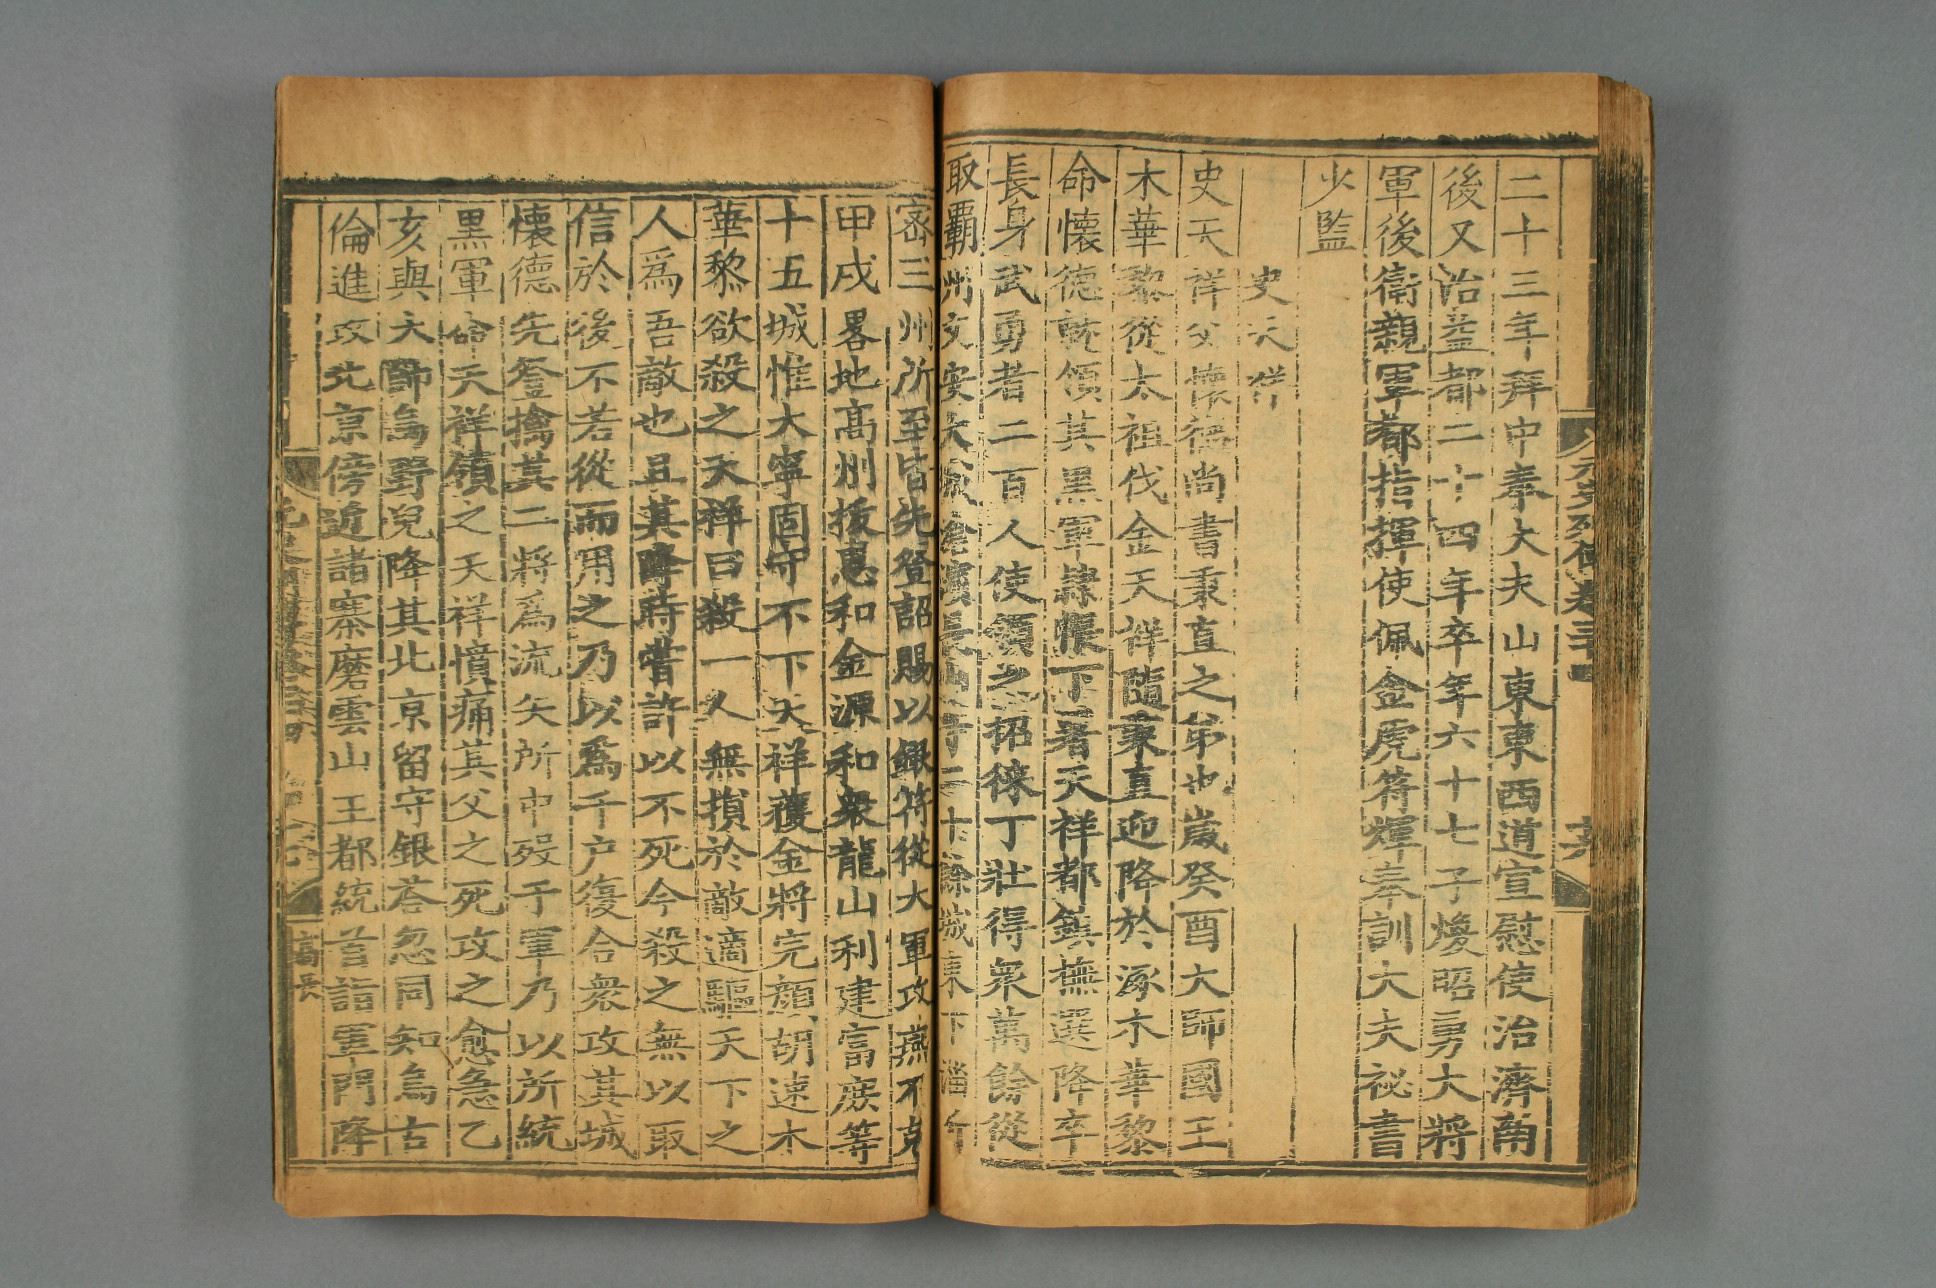 元史列傳卷三十四
十六
二十三年拜中奉大夫山東東西道宣慰使治濟南
後又治益都二十四年卒年六十七子煥昭勇大將
軍後衛親軍都指揮使佩金虎符煇奉訓大夫祕書
少監
史天祥
史天祥父懷德尚書秉直之弟也歲癸酉大師國王
木華黎從太祖伐金天祥隨秉直迎降於涿木華黎
命懷德就領其黑軍隷帳下署天祥都鎮撫選降卒
長身武勇者二百人使領之招徠丁壯得衆萬餘從
取覇州文安大城滄濱長山等二十餘城東下淄沂
密三州所至皆先登詔賜以銀符從大軍攻燕不克
甲戌畧地高州拔惠和金源和衆龍山利建富庶等
十五城惟大寧固守不下天祥獲金將完顔胡速木
華黎欲殺之天祥曰殺一人無損於敵適驅天下之
人爲吾敵也且其降時嘗許以不死今殺之無以取
信於後不若從而用之乃以爲千户復合衆攻其城
懷德先登擒其二將爲流矢所中殁于軍乃以所統
黑軍命天祥領之天祥憤痛其父之死攻之愈急乙
亥與大帥烏野兒降其北京留守銀荅忽同知烏古
倫進攻北京傍近諸寨磨雲山王都統首詣軍門降